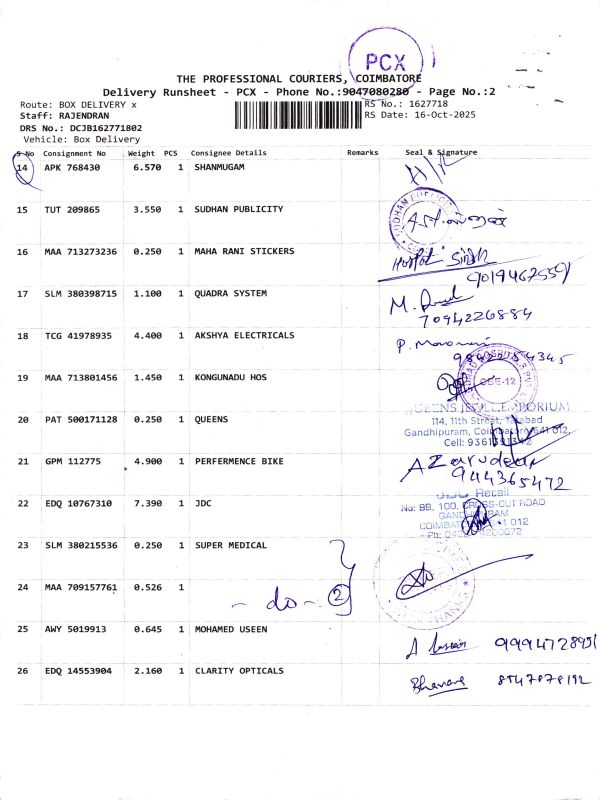 PCX
THE PROFESSIONAL COURIERS, COIMBATORE
Delivery Runsheet - PCX - Phone No.:9047080280 - Page No.:2
Route: BOX DELIVERY x RS No.: 1627718
Staff: RAJENDRAN RS Date: 16-Oct-2025
DRS No.: DCJB162771802
Vehicle: Box Delivery
S No Consignment No Weight PCS Consignee Details Remarks Seal & Signature
14 APK 768430 6.570 1 SHANMUGAM
15 TUT 209865 3.550 1 SUDHAN PUBLICITY
16 MAA 713273236 0.250 1 MAHA RANI STICKERS
Singh
17 SLM 380398715 1.100 1 QUADRA SYSTEM M.
7094226884
18 TCG 41978935 4.400 1 AKSHYA ELECTRICALS P.
19 MAA 713801456 1.450 1 KONGUNADU HOS
20 PAT 500171128 0.250 1 QUEENS
114, 11th Street,
Gandhipuram,
Cell:
21 GPM 112775 4.900 1 PERFERMENCE BIKE
944365472
22 EDQ 10767310 7.390 1 JDC
Retail
No: 99, 100, CROSS-CUT ROAD
23 SLM 380215536 0.250 1 SUPER MEDICAL
24 MAA 709157761 0.526 1
- do - 2
25 AWY 5019913 0.645 1 MOHAMED USEEN
26 EDQ 14553904 2.160 1 CLARITY OPTICALS